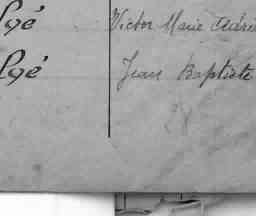 lgé Victor Marie
lgé Jean Baptiste